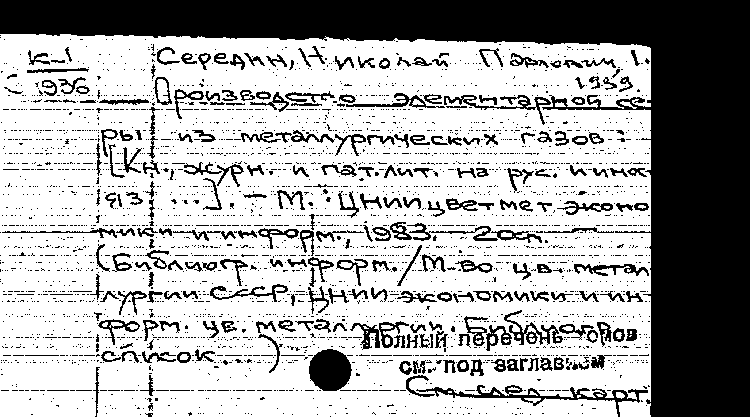 К-1
936
Середин, Николай Павлович, 1.
1939.
Производство элементарной се-
ры из металлургических газов:
[Кн., журн. и пат. лит. на рус. и
...]. – М.: ЦНИИцветмет эконо
мики и информ., 1983. –
(Библиогр. информ./М-во цв. метал
лургии СССР, ЦНИИ экономики и ин-
форм. цв. металлургии. Библиогр.
список...)
Полный перечень томов
см. под заглавием
См. след. карт.